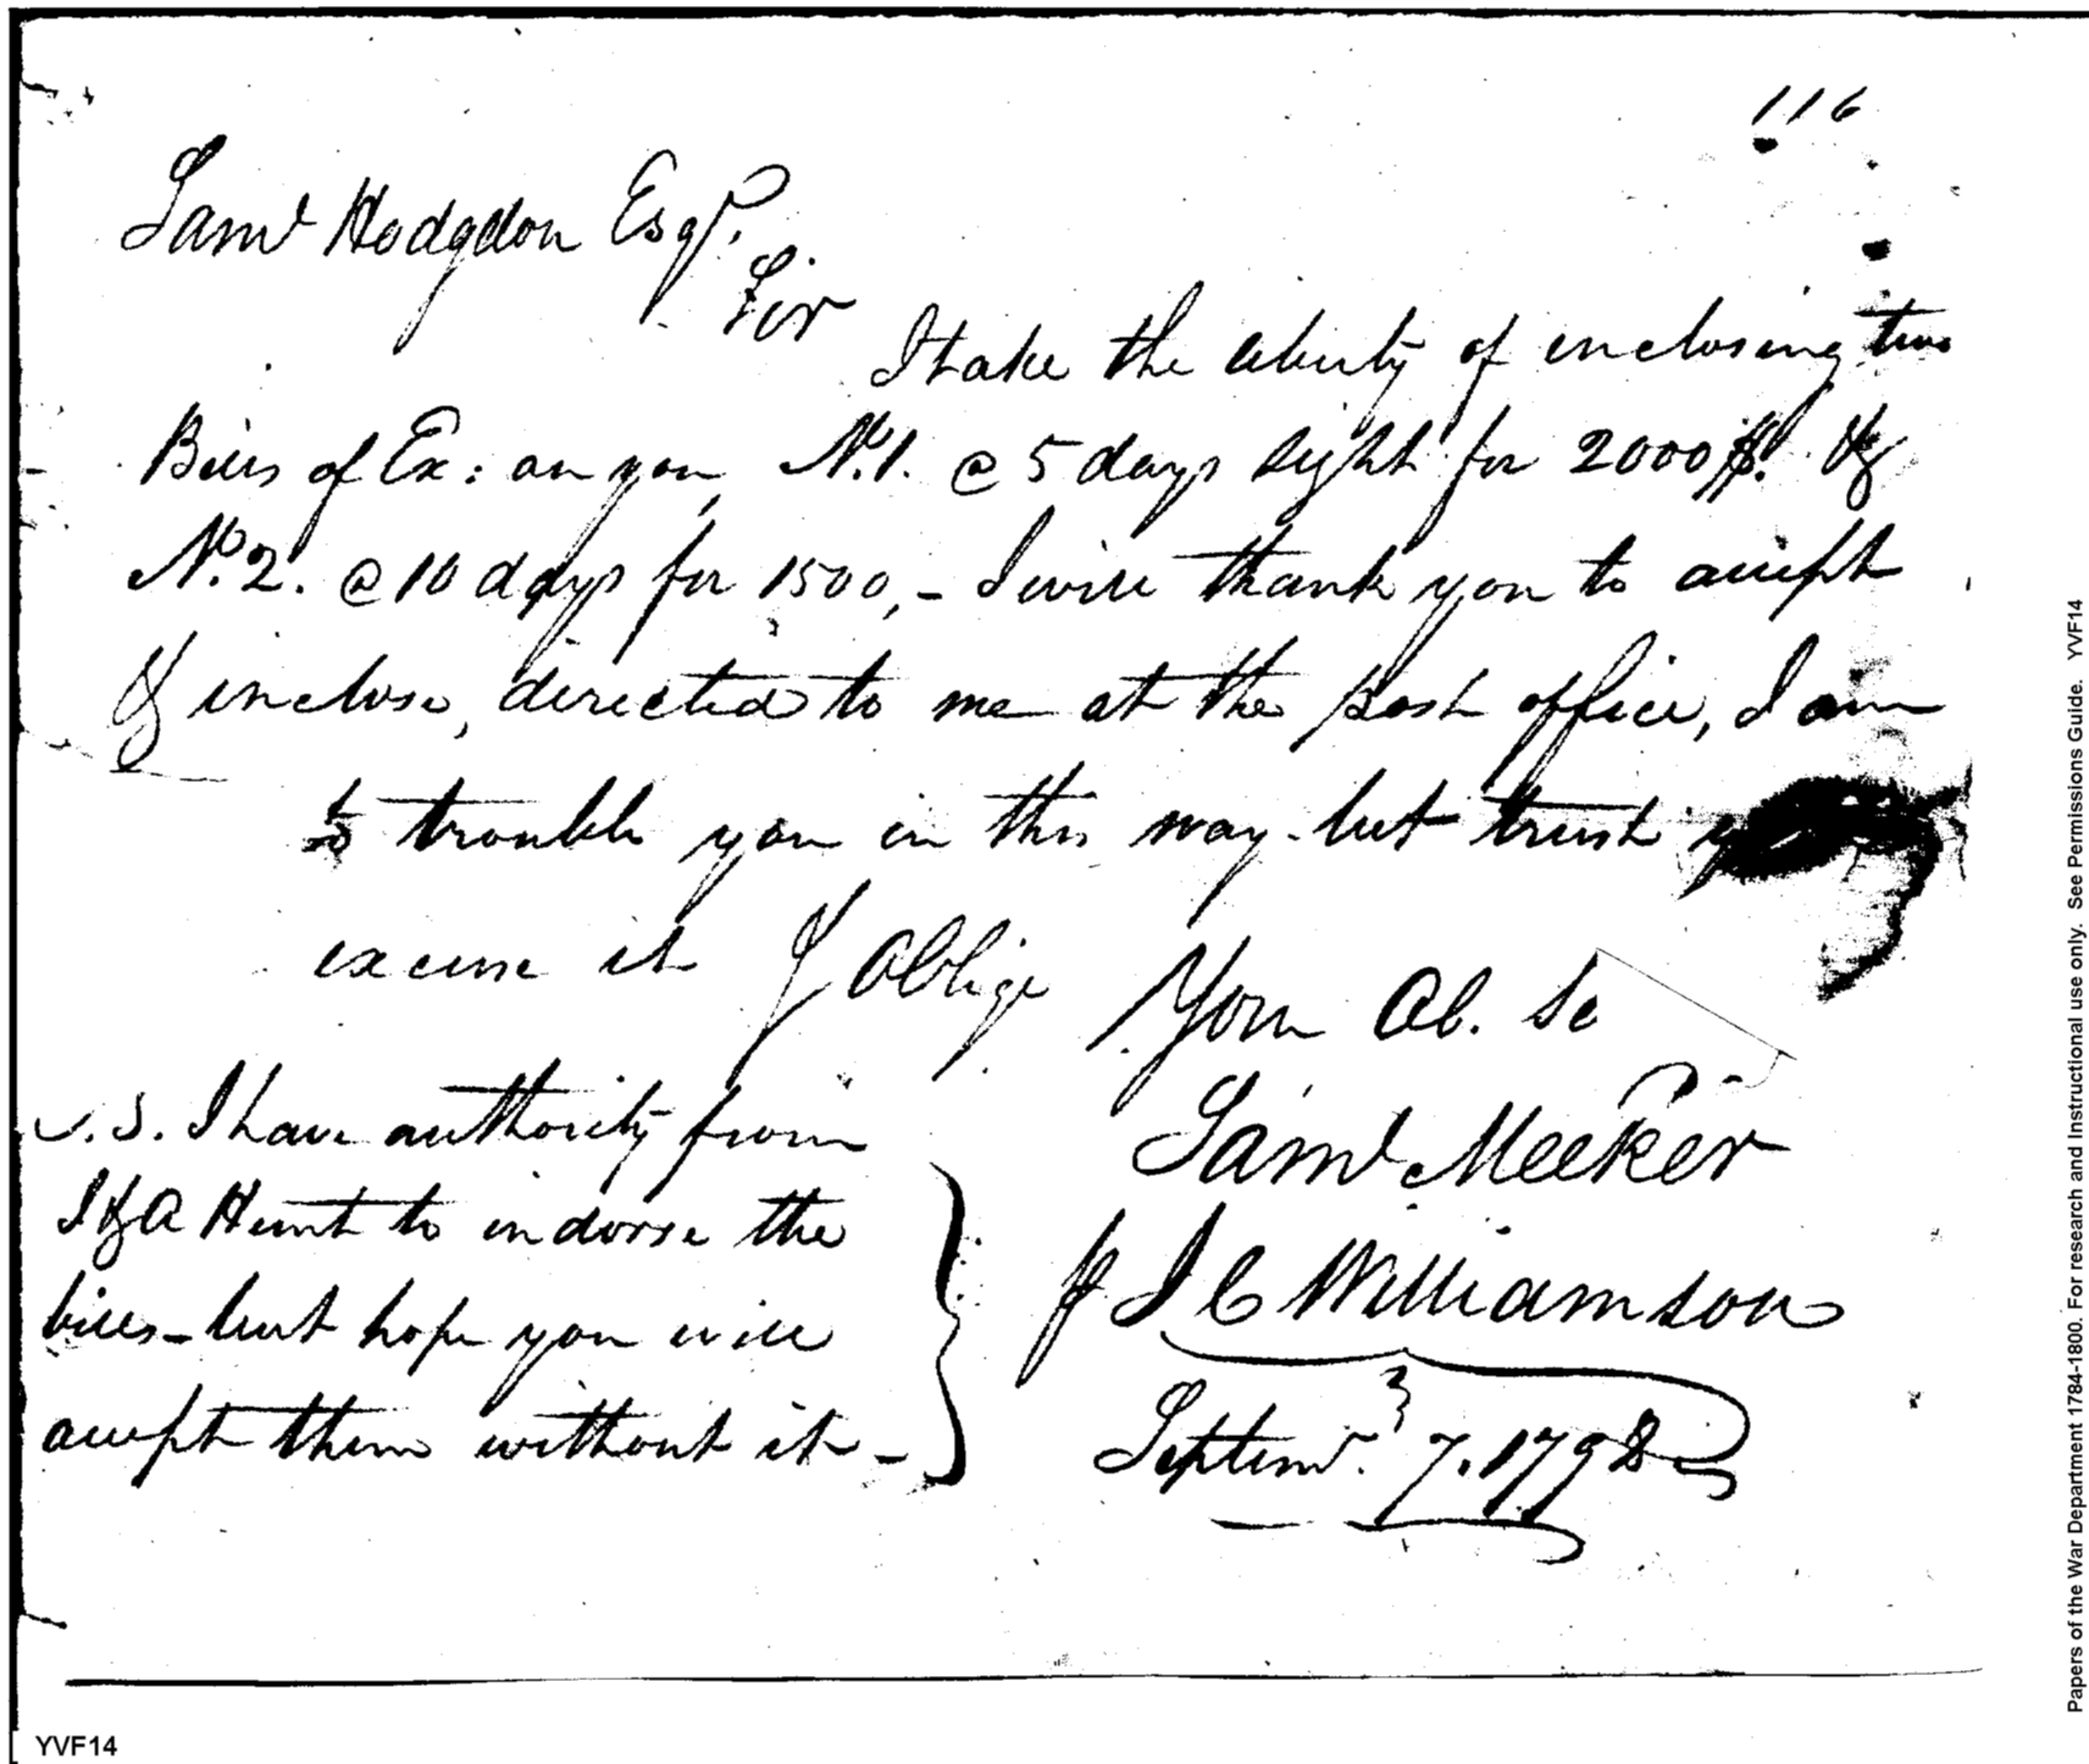 116
Saml Hodgdon Esqr.
Sir
I take the liberty of inclosing two
Bills of Ex: on you No. 1. @ 5 days sight for 2000 $. &
No. 2. @ 10 days for 1500,- I will thank you to accept
& inclose, directed to me at the post office, I am
to trouble you in this way - but trust
excuse it & Oblige
Your Ob. Se
Saml Meeker
p J C Williamson
Septemr. 7. 1798
.S. I have authority from
J & A Hunt to indorse the
bills - but hope you will
accept them without it -
YVF14
Papers of the War Department 1784-1800. For research and Instructional use only. See Permissions Guide. YVF14